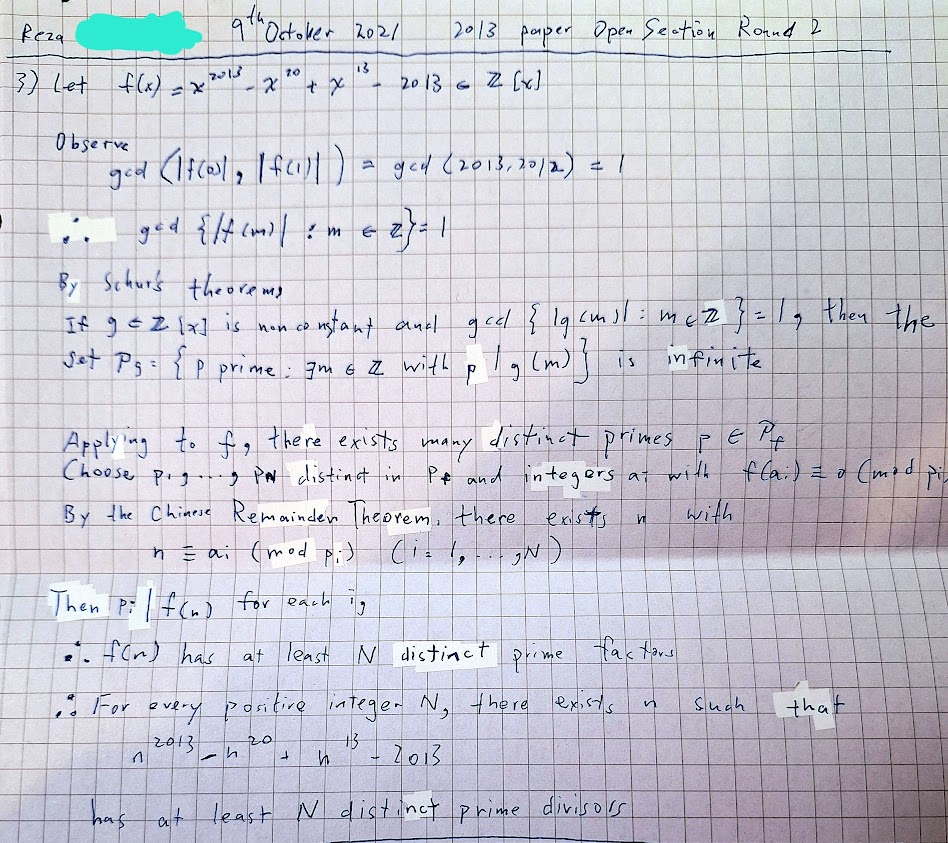 Reza 9th October 2021 2013 paper Open Section Round 2
3) Let f(x) = x^2013 - x^20 + x^13 - 2013 ∈ ℤ[x]
Observe
gcd (|f(0)|, |f(1)|) = gcd (2013, 2012) = 1
∴ gcd {|f(m)| : m ∈ ℤ} = 1
By Schur's theorem,
If g ∈ ℤ[x] is nonconstant and gcd {|g(m)| : m ∈ ℤ} = 1, then the
set Pg = {p prime : ∃m ∈ ℤ with p | g(m)} is infinite
Applying to f, there exists many distinct primes p ∈ Pf
Choose p1, ..., pN distinct in Pf and integers ai with f(ai) ≡ 0 (mod pi)
By the Chinese Remainder Theorem, there exists n with
n ≡ ai (mod pi) (i = 1, ..., N)
Then pi | f(n) for each i,
∴ f(n) has at least N distinct prime factors
∴ For every positive integer N, there exists n such that
n^2013 - n^20 + n^13 - 2013
has at least N distinct prime divisors